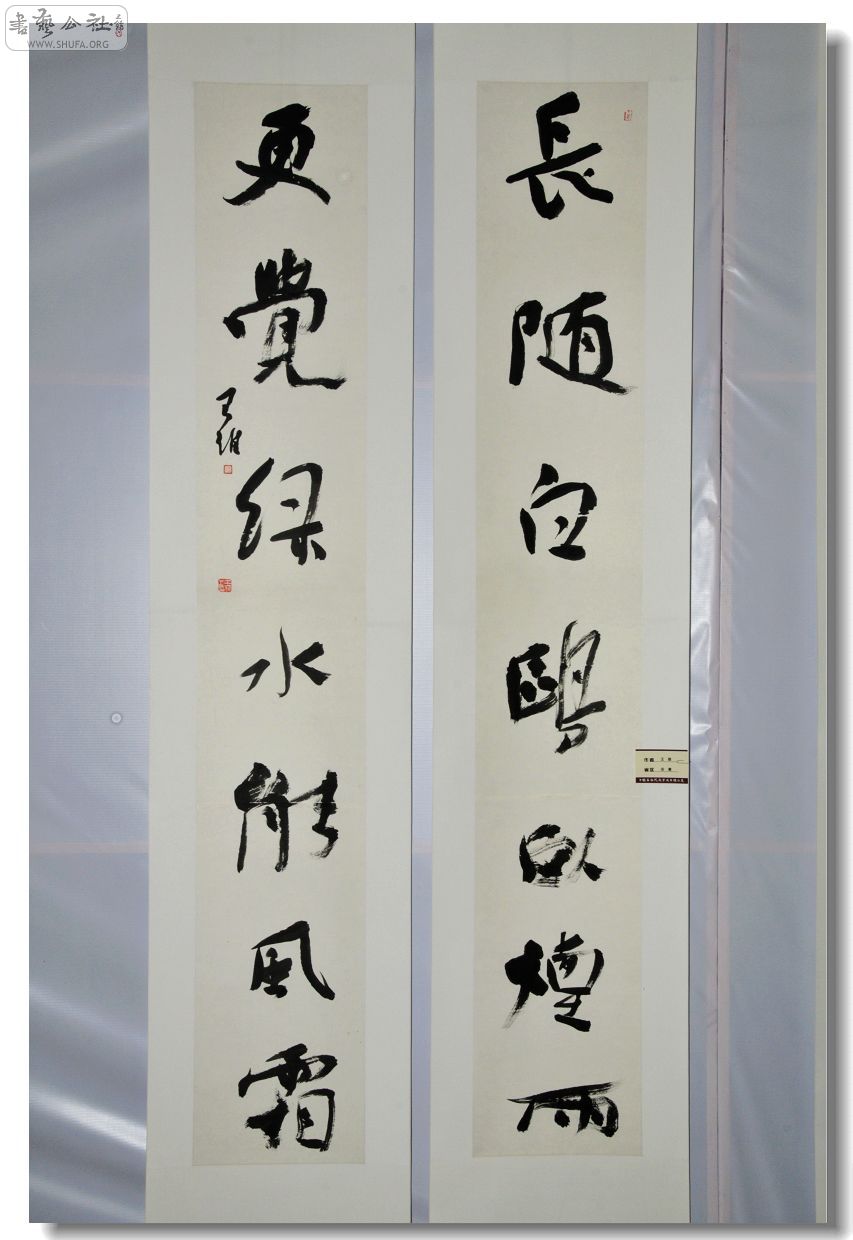 書藝公社
WWW.SHUFA.ORG
長随白鷗臥煙雨
更覺緑水能風霜